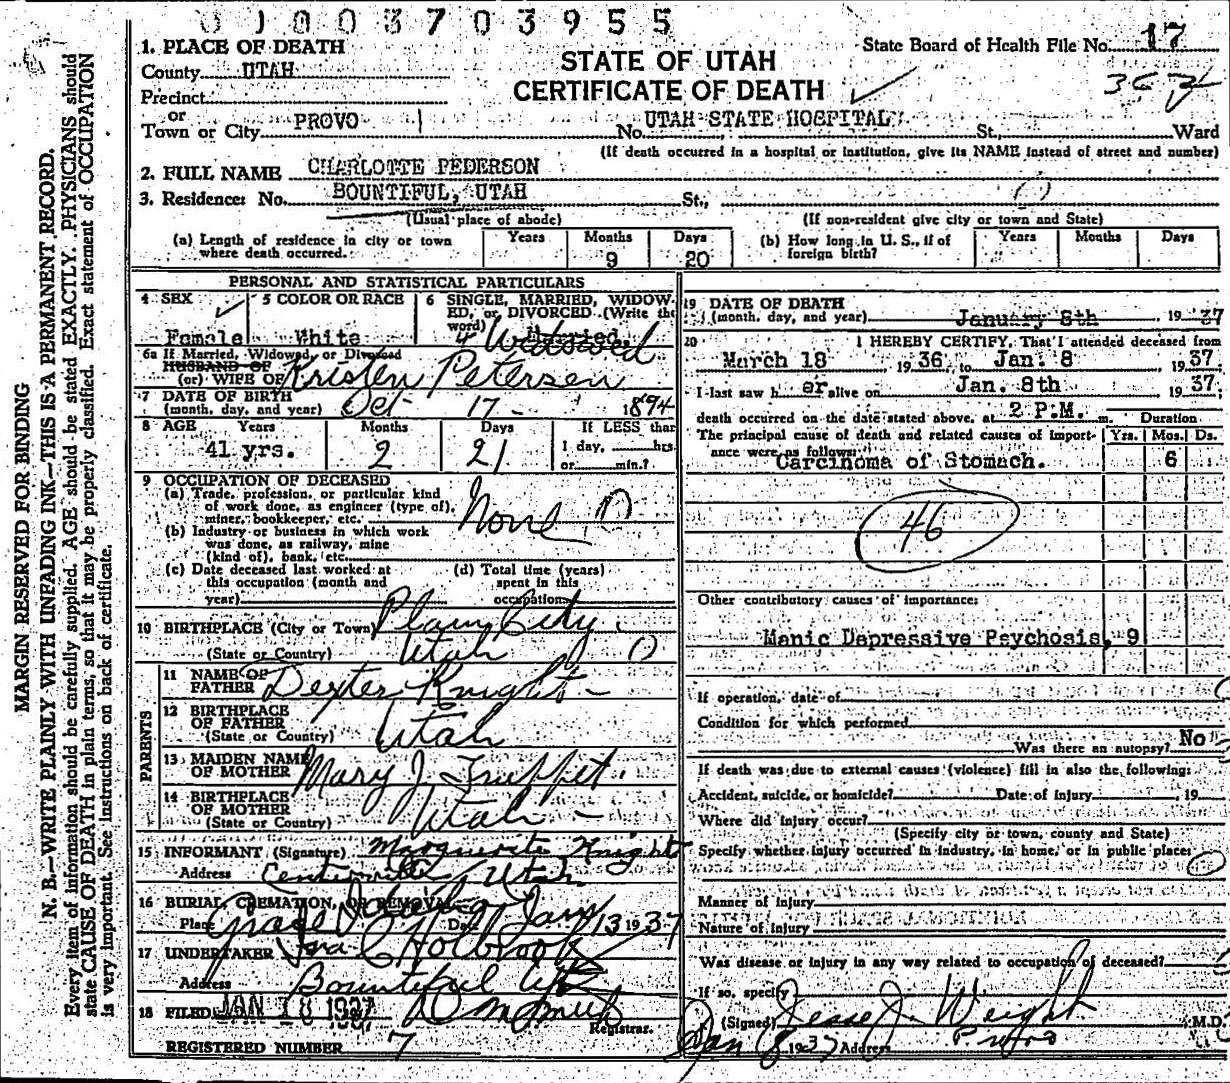 0 1 0 0 3 7 0 3 9 5 5
1. PLACE OF DEATH
County UTAH
Precinct
or
Town or City PROVO
STATE OF UTAH
CERTIFICATE OF DEATH
State Board of Health File No. 17
No. UTAH STATE HOSPITAL St., Ward
(If death occurred in a hospital or institution, give its NAME instead of street and number)
2. FULL NAME CHARLOTTE PEDERSON
3. Residence: No. BOUNTIFUL, UTAH St.,
(Usual place of abode) (If non-resident give city or town and State)
(a) Length of residence in city or town where death occurred. Years Months 9 Days 20
(b) How long in U. S., if of foreign birth? Years Months Days
PERSONAL AND STATISTICAL PARTICULARS
4 SEX Female
5 COLOR OR RACE White
6 SINGLE, MARRIED, WIDOWED, or DIVORCED (Write the word) Married 4 Widowed
6a If Married, Widowed, or Divorced
HUSBAND OF
(or) WIFE OF Kristen Petersen
7 DATE OF BIRTH
(month, day, and year) Oct - 17 - 1894
8 AGE Years 41 yrs. Months 2 Days 21 If LESS than
1 day, hrs.
or min.?
9 OCCUPATION OF DECEASED
(a) Trade, profession, or particular kind
of work done, as engineer (type of),
miner, bookkeeper, etc. None
(b) Industry or business in which work
was done, as railway, mine
(kind of), bank, etc.
(c) Date deceased last worked at
this occupation (month and
year)
(d) Total time (years)
spent in this
occupation
10 BIRTHPLACE (City or Town) Plain City
(State or Country) Utah
PARENTS
11 NAME OF
FATHER Dexter Knight -
12 BIRTHPLACE
OF FATHER
(State or Country) Utah
13 MAIDEN NAME
OF MOTHER Mary J
14 BIRTHPLACE
OF MOTHER
(State or Country) Utah -
15 INFORMANT (Signature) Marguerite Knight
Address Centerville, Utah
16 BURIAL, CREMATION, OR REMOVAL
Place Date Jan 13 1937
17 UNDERTAKER Ira C Holbrook
Address Bountiful Ut
18 FILED JAN 18 1937
Registrar.
REGISTERED NUMBER 7
19 DATE OF DEATH
(month, day, and year) January 8th 19 37
20 I HEREBY CERTIFY, That I attended deceased from
March 18 19 36, to Jan. 8 19 37.
I last saw h er alive on Jan. 8th 19 37;
death occurred on the date stated above, at 2 P.M. m. Duration
The principal cause of death and related causes of importance were as follows: Yrs. Mos. Ds.
Carcinoma of Stomach. 6
46
Other contributory causes of importance:
Manic Depressive Psychosis, 9
If operation, date of
Condition for which performed
Was there an autopsy? No
If death was due to external causes (violence) fill in also the following:
Accident, suicide, or homicide? Date of injury , 19
Where did injury occur?
(Specify city or town, county and State)
Specify whether injury occurred in industry, in home, or in public place:
Manner of injury
Nature of injury
Was disease or injury in any way related to occupation of deceased?
If so, specify
(Signed) Jesse J. Weight M.D.
Jan 8 1937 Address Provo
MARGIN RESERVED FOR BINDING
N. B.—WRITE PLAINLY WITH UNFADING INK—THIS IS A PERMANENT RECORD.
Every item of information should be carefully supplied. AGE should be stated EXACTLY. PHYSICIANS should
state CAUSE OF DEATH in plain terms, so that it may be properly classified. Exact statement of OCCUPATION
is very important. See instructions on back of certificate.